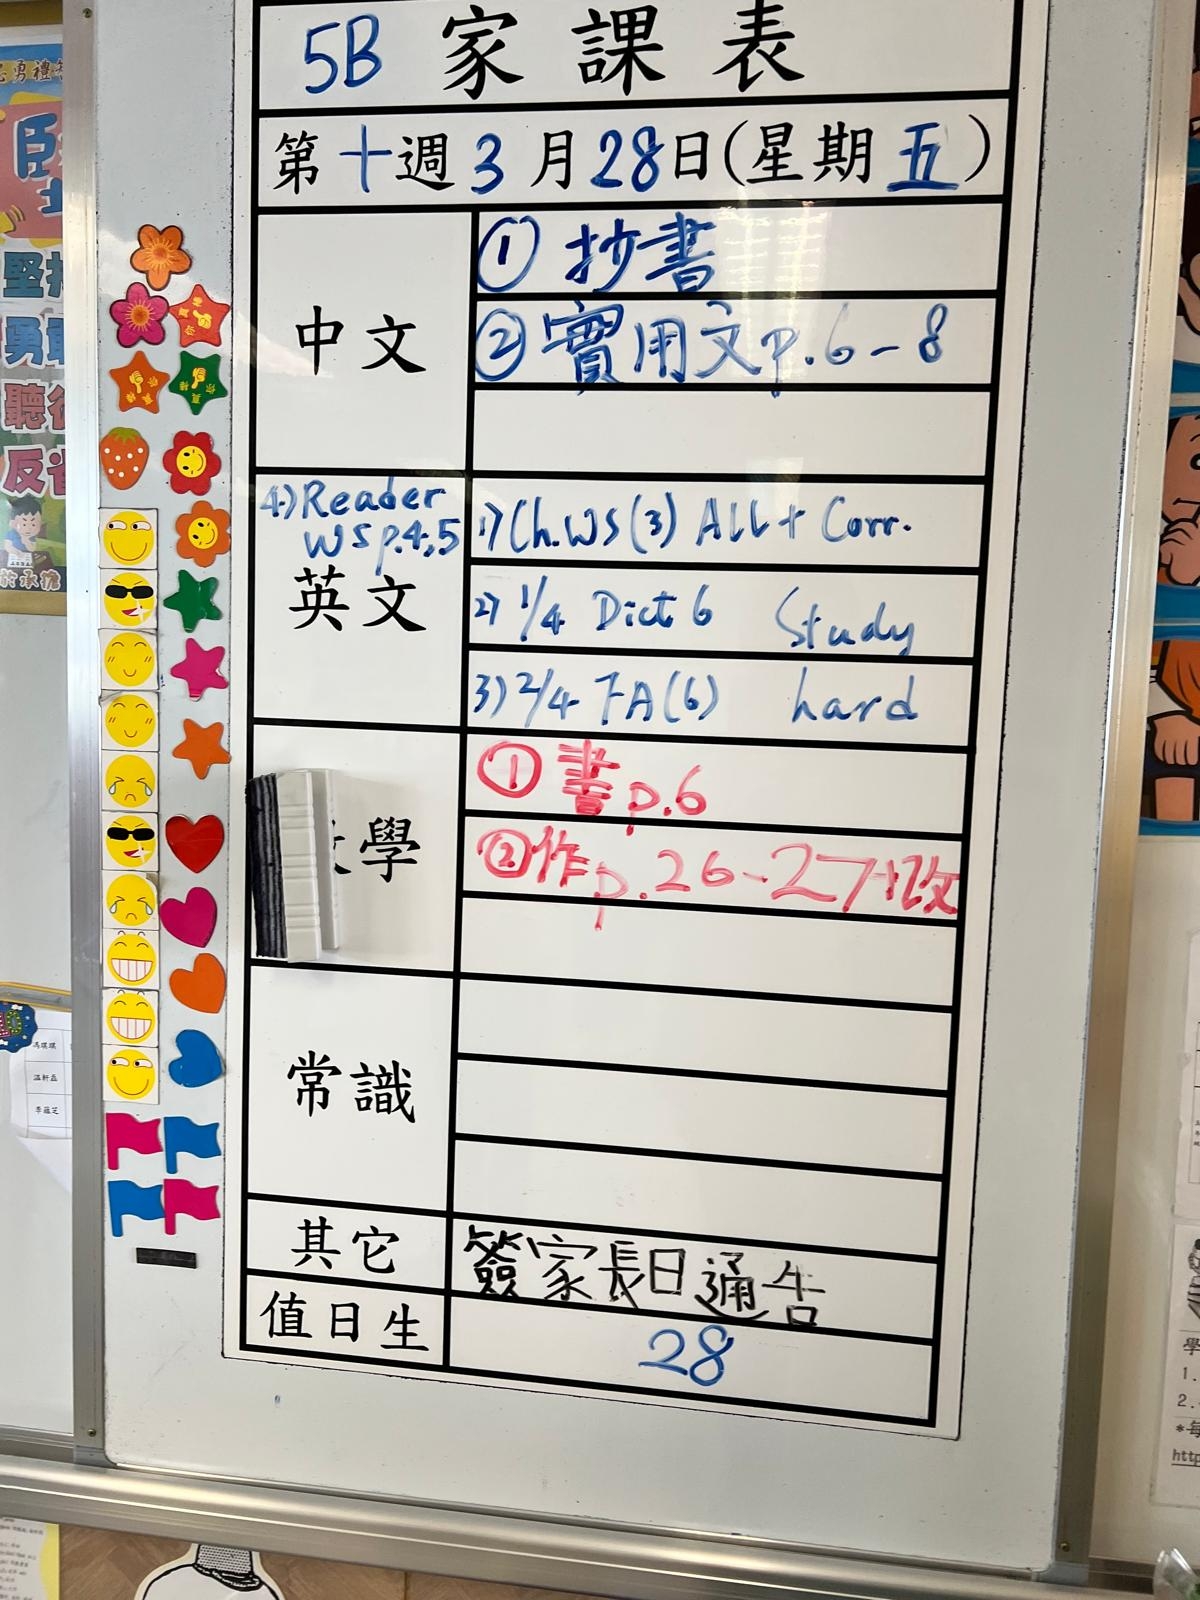 5B 家課表
第十週3月28日(星期五)
中文
① 抄書
② 實用文p.6-8
4) Reader
WS p.4,5
英文
1) Ch.WS (3) All + Corr.
2) 1/4 Dict 6 Study
3) 2/4 FA(6) hard
學
① 書p.6
②作p.26-27+改
常識
其它
簽家長日通告
值日生
28
堅
勇
聽
反
馮琪琪
溫軒磊
學
1.
2.
http